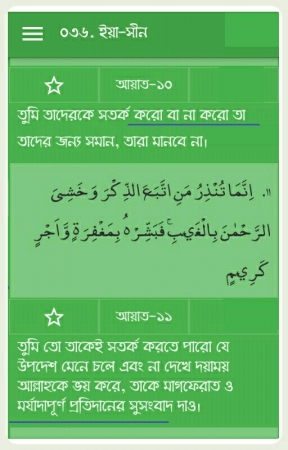 ০৩৬. ইয়া-সীন
আয়াত-১০
তুমি তাদেরকে সতর্ক করো বা না করো তা
তাদের জন্য সমান, তারা মানবে না।
١١. اِنَّمَا تُنْذِرُ مَنِ اتَّبَعَ الذِّكْرَ وَ خَشِىَ
الرَّحْمٰنَ بِالْغَيْبِ ۚ فَبَشِّرْهُ بِمَغْفِرَةٍ وَّ اَجْرٍ
كَرِيْمٍ
আয়াত-১১
তুমি তো তাকেই সতর্ক করতে পারো যে
উপদেশ মেনে চলে এবং না দেখে দয়াময়
আল্লাহকে ভয় করে, তাকে মাগফেরাত ও
মর্যাদাপূর্ণ প্রতিদানের সুসংবাদ দাও।